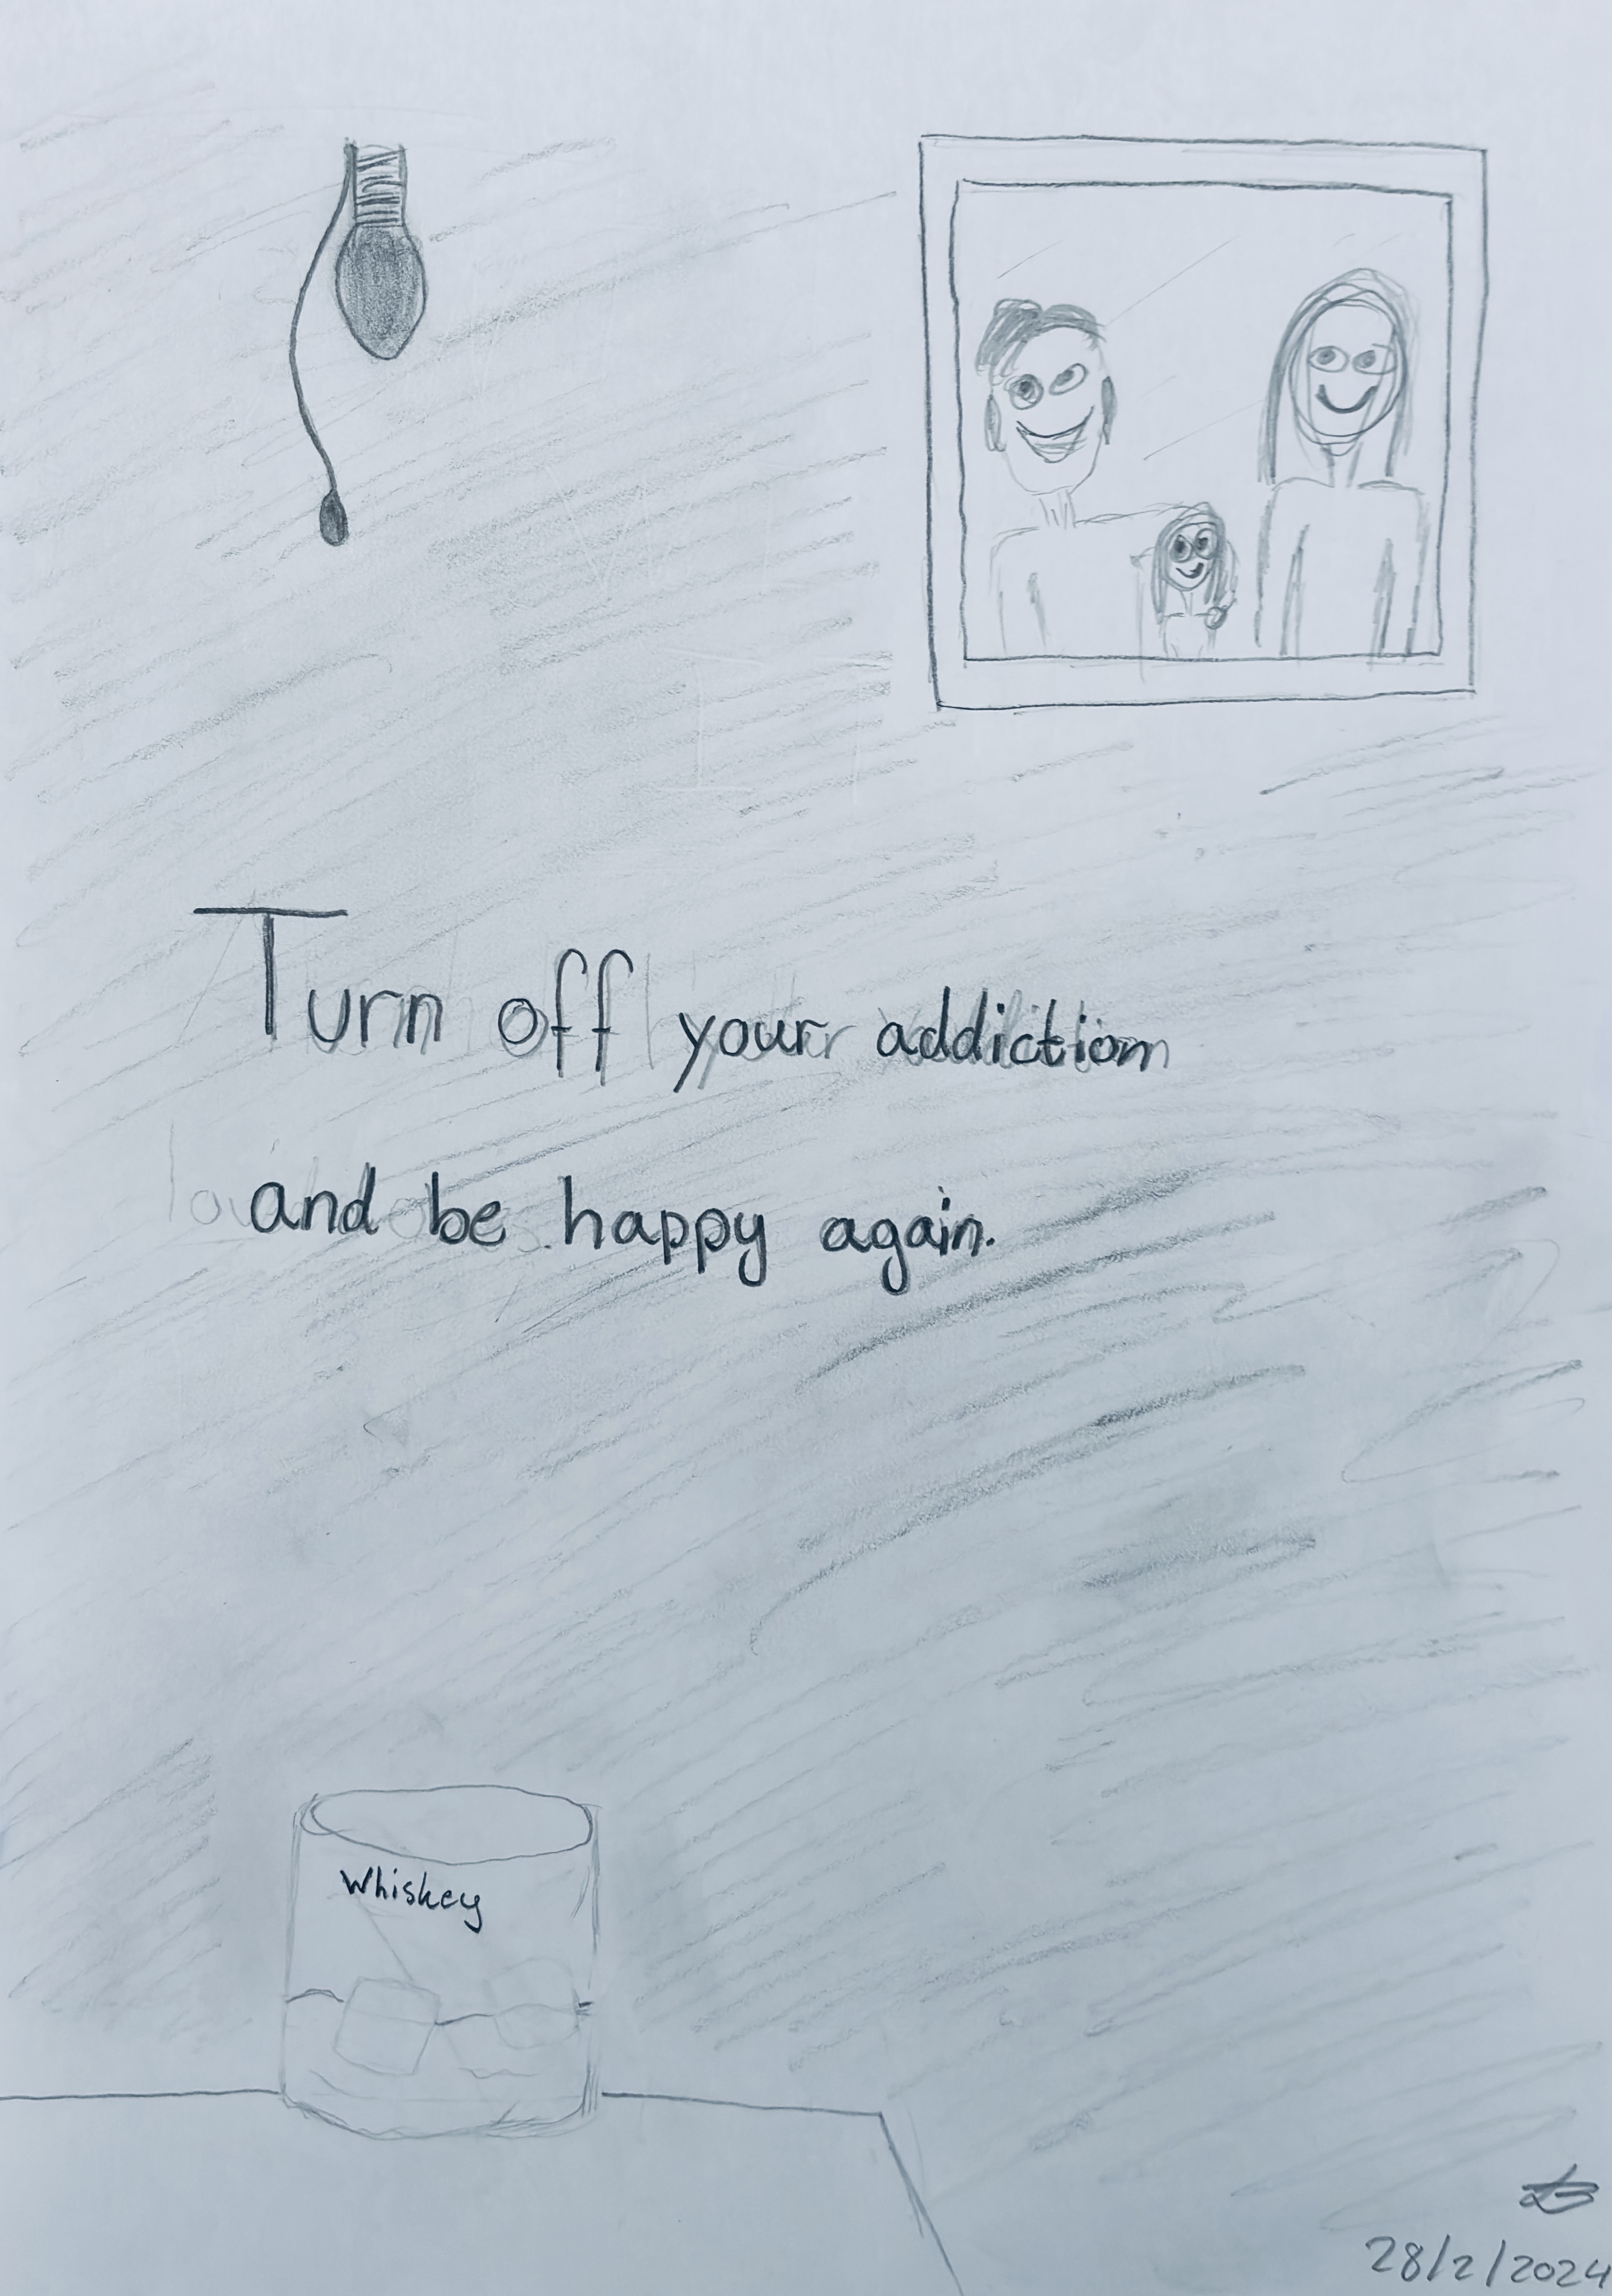 Turn off your addiction
and be happy again.
Whiskey
28/2/2024